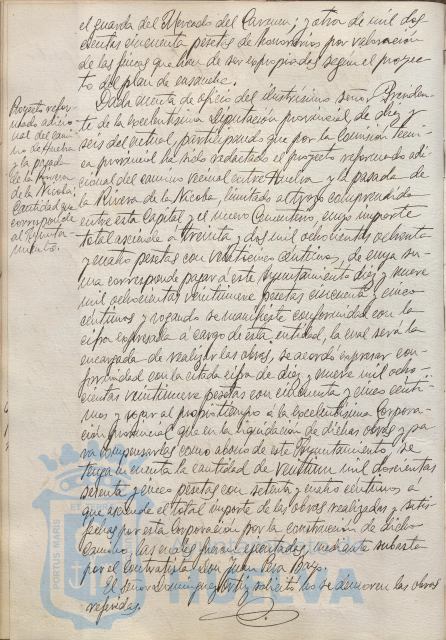 el guarda del Mercado del Carmen; y otra de mil dos
cientas cincuenta pesetas de honorarios por valoración
de las fincas que han de ser expropiadas según el proyec
to del plan de ensanche.
Proyecto refor
mado adicio
nal del cami
no de Huelva
y la pasada
de la Rivera
de la Nicoba,
Cantidad que
corresponde
al Ayunta
miento.
Dada cuenta de oficio del ilustrísimo señor Presiden
te de la Excelentísima Diputación provincial de diez y
seis del actual, participando que por la Comisión técni
ca provincial ha sido redactado el proyecto reformado adi
cional del camino vecinal entre Huelva y la pasada de
la Rivera de la Nicoba, limitado al trozo comprendido
entre esta Capital y el nuevo Cementerio, cuyo importe
total asciende á treinta y dos mil ochocientas ochenta
y cuatro pesetas con veinticinco céntimos, de cuya su
ma corresponde pagar á este Ayuntamiento diez y nueve
mil ochocientas veintinueve pesetas cincuenta y cinco
céntimos y rogando se manifieste conformidad con la
cifra expresada á cargo de esta entidad, la cual será la
encargada de realizar las obras, se acordó expresar con
formidad con la citada cifra de diez y nueve mil ocho
cientas veintinueve pesetas con cincuenta y cinco cénti
mos y rogar al propio tiempo á la Excelentísima Corpora
ción provincial que en la liquidación de dichas obras y pa
ra compensarlas como abono de este Ayuntamiento, se
tenga en cuenta la cantidad de mil doscientas
setenta y cinco pesetas con setenta y cuatro céntimos á
que asciende el total importe de las obras realizadas y satis
fechas por esta Corporación por la construcción de dicho
camino, las cuales fueron ejecutadas mediante subasta
por el contratista Don Juan
El señor Domínguez Ortiz solicitó no se demoren las obras
referidas.
PORTUS MARIS
HUELVA